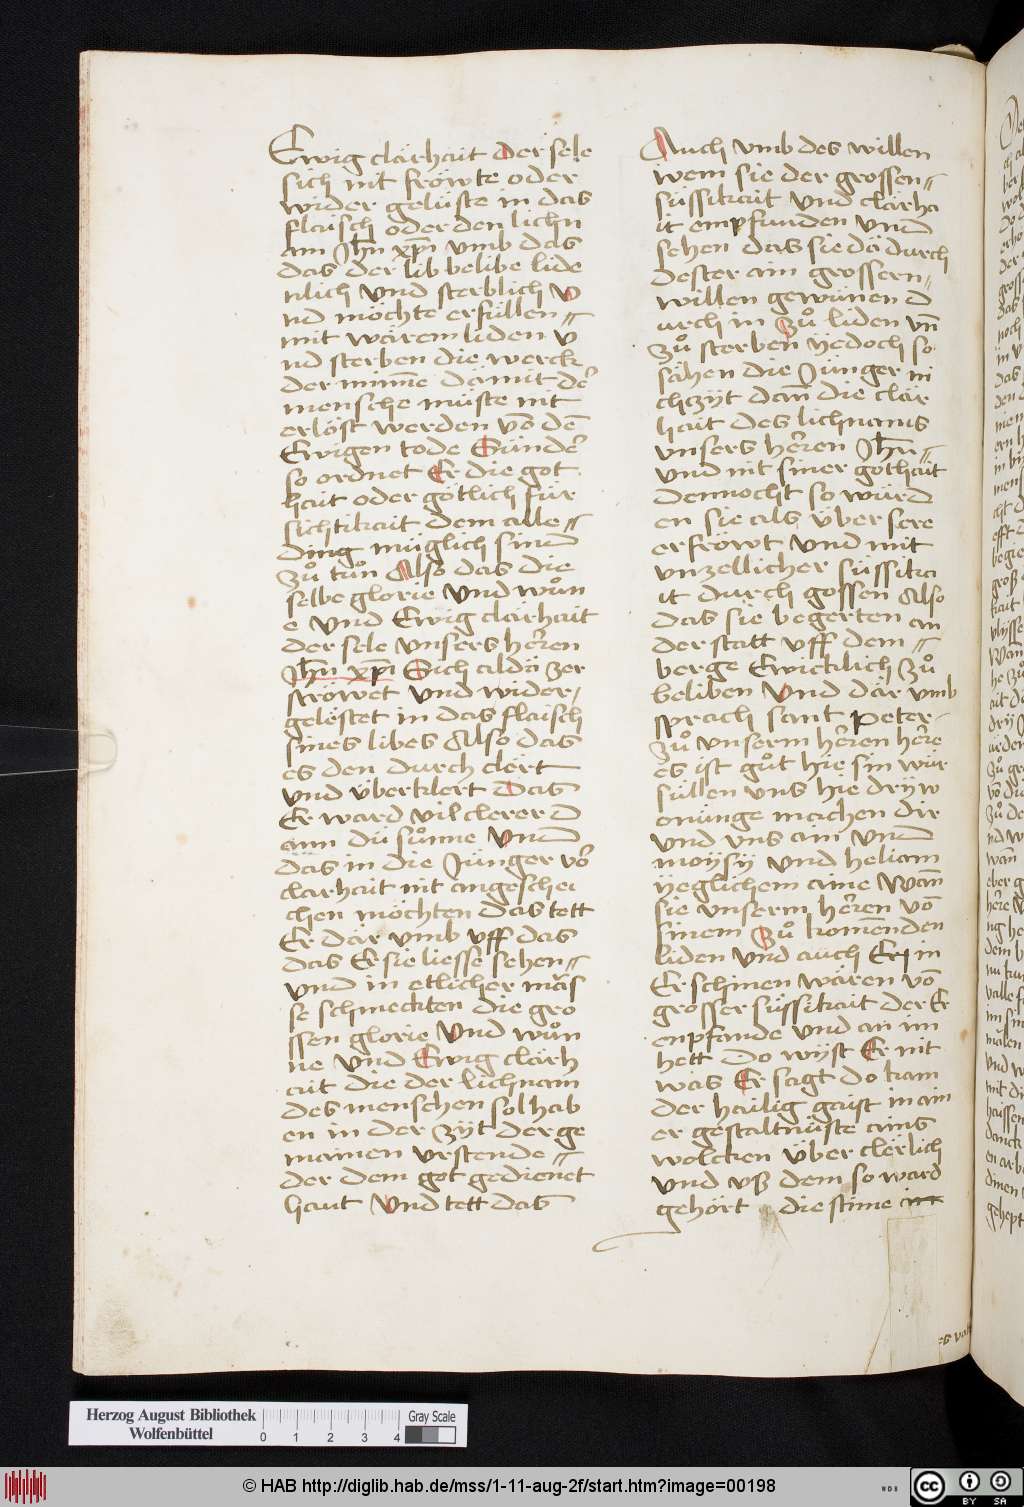 Ewig clärhait der sele
sich nit fröwte oder
wider gelüste in das
flaisch oder den lichn
am Jhn xpi vmb das
das der lib belibe lide
nlich vnd sterblich v
nd möchte erfüllen
mit wärem liden v
nd sterben die werck
der minne dämit der
mensche müste nit
erlöst werden võ dē
Ewigen tode Sünder
so ordnet Er die got
hait oder götlich für
sichtikait dem alle
ding müglich sind
zů tůn Also das die
selbe glorie vnd wůn
e vnd Ewig clärhait
der sele vnsers herren
Jhn xpi Sich aldä zer
ströwet vnd wider
gelöstet in das flaisch
sines libes Also das
es den durch clert
vnd überklert Das
Er ward vil clerer d
ann dü sůnne vnd
däs in die Jünger vor
clarhait nit angeschei
chen möchten das tett
Er där vmb vff das
das Er sie liesse sehen
vnd in etlicher mäs
se schmeckten die gro
ssen glorie vnd wůn
ne vnd Ewig clärh
ait die der lichnam
des menschen sol hab
en in der zyt der ge
mainen vrstende
der dem got gedienet
haut Vnd tett das
Auch vmb des willen
wem sie der grossen
süssikait vnd clärha
it empfunden vnd
sehen das sie dä durch
dester ain grossern
willen gewünen d
urch in zů liden vñ
zů sterben yedoch so
sähen die Jünger ni
chzyt dañ die clär
hait des lichnams
vnsers herren Jhu
vnd nit siner gothait
dennocht so würd
en sie als über sere
erfröwt vnd mit
vnzellicher süssika
it durch gossen Also
das sie begerten an
der statt vff dem
berge Ewicklich zů
beliben Vnd där vmb
sprach sant peter
zů vnserm herren here
es ist gůt hie sin wür
süllen vns hie dryw
onünge machen dir
vnd vns ain vnd
moysy vnd heliam
yeglichem aine Wañ
sie vnserm herren võ
sinem Zů komenden
liden vnd auch Er in
Er schinen wären võ
grosser süssikait der Er
enpfande vnd an im
hett Do wyst Er nit
was Er sagt do kam
der hailig gaist in ain
er gestaltnüste ains
wolcken über clerlich
vnd vß dem so ward
gehört die stime
Herzog August Bibliothek
Wolfenbüttel
0 1 2 3 4
Gray Scale
© HAB http://diglib.hab.de/mss/1-11-aug-2f/start.htm?image=00198
cc BY SA